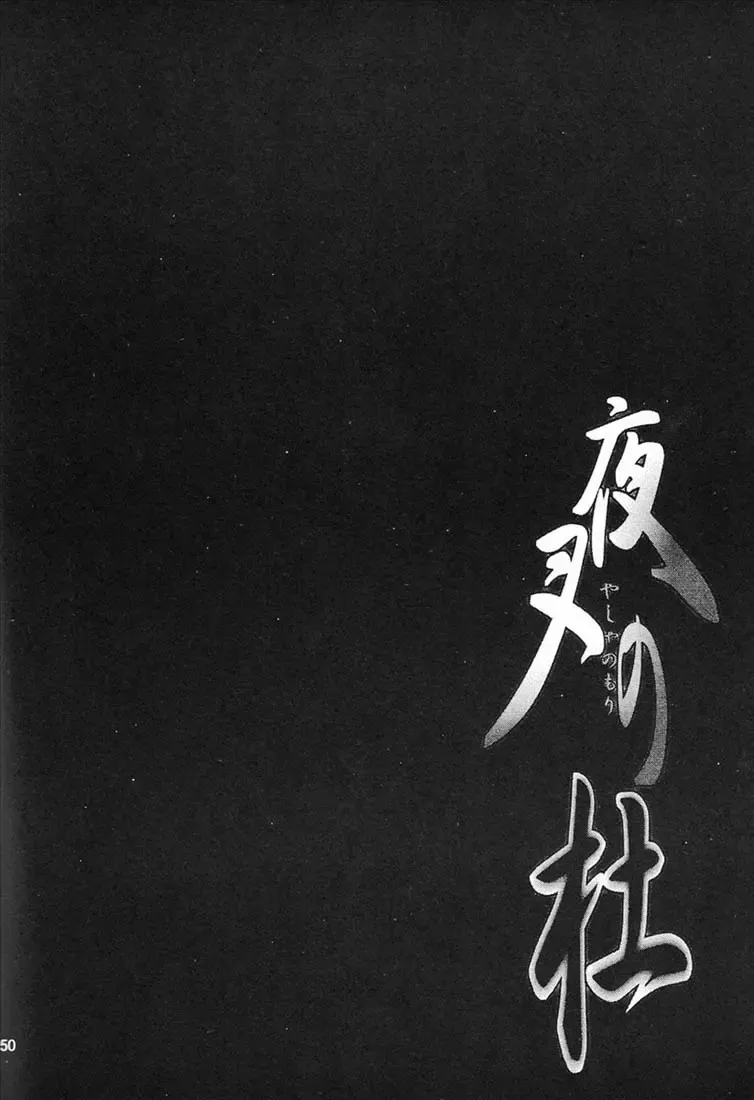 夜叉の杜
やしゃのもり
50